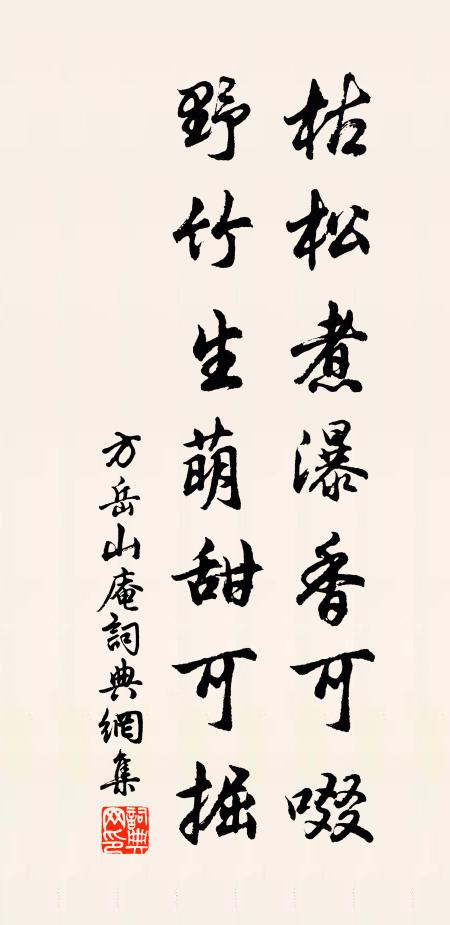 枯松煮瀑香可啜
野竹生萌甜可掘
方岳山庵詞典網集
詞典網印